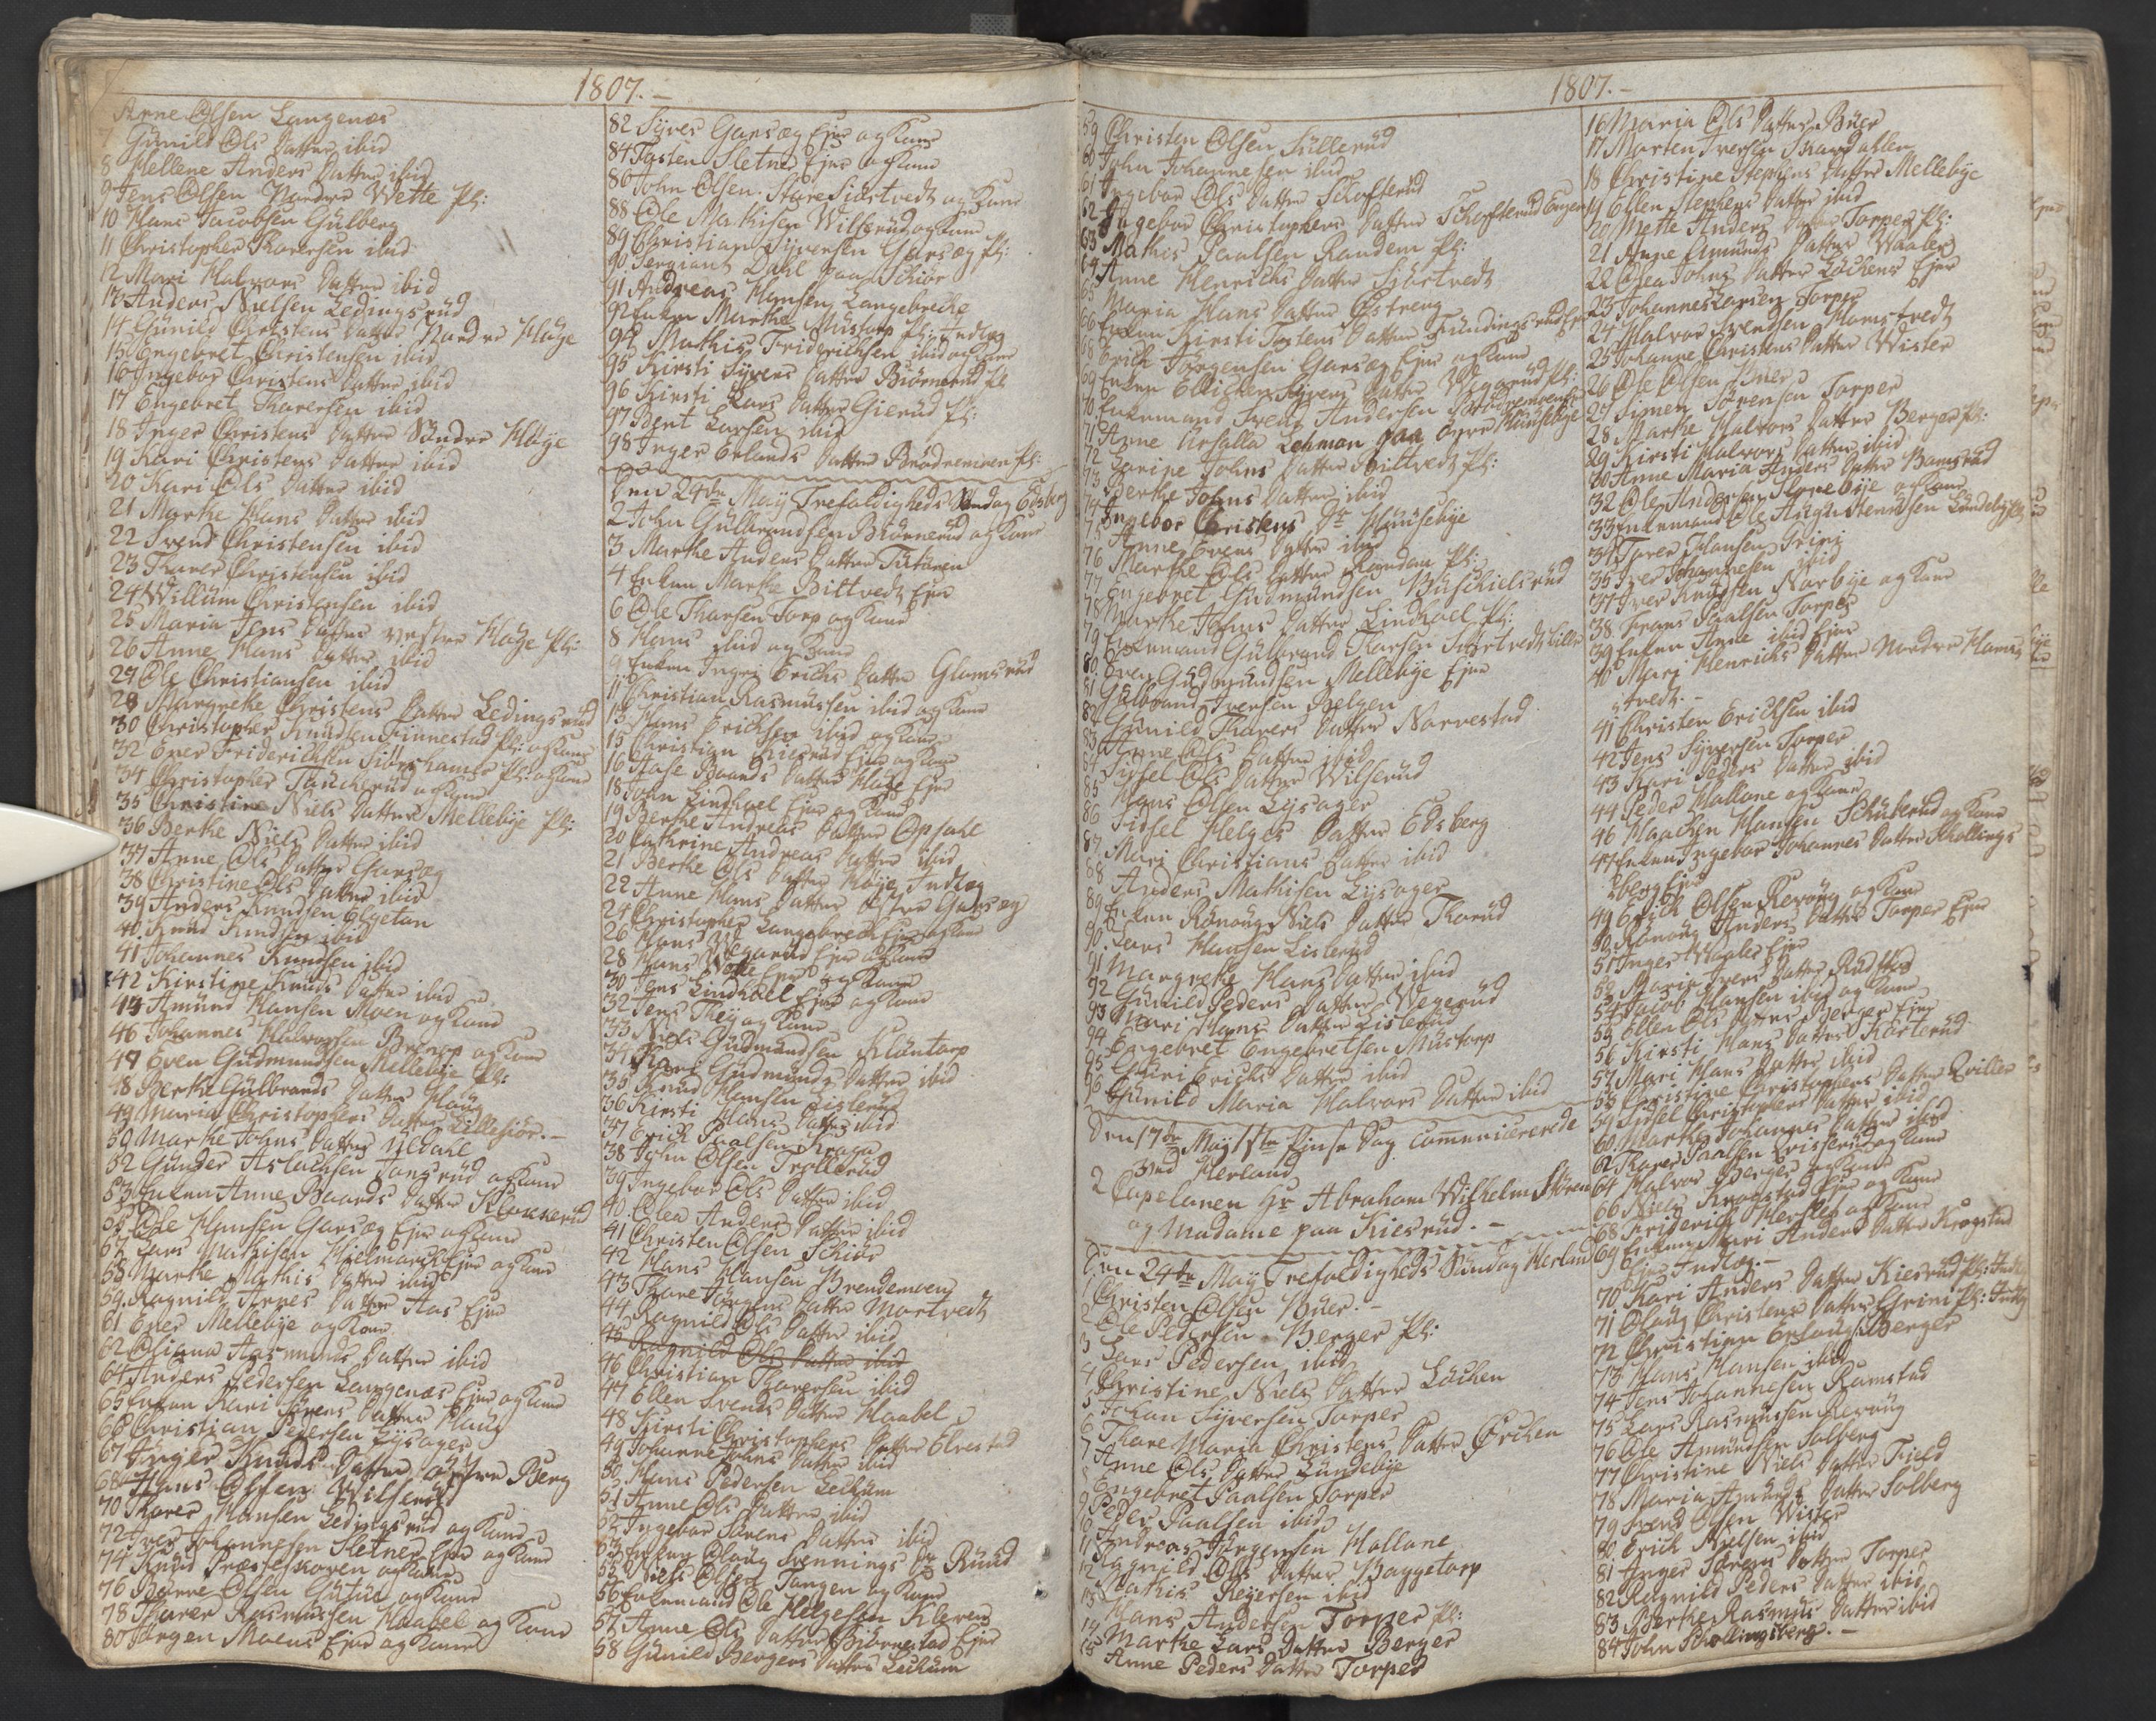 1807.
Arne Olsen Langenæs
7 Gunild Ols Datter ibid
8 Hellene Anders Datter ibid
9 Jens Olsen Nordre Wette Pl:
10 Hans Jacobsen Gulberg
11 Christopher Thoresen ibid
12 Mari Halvors Datter ibid
13 Anders Nielsen Ledingsrud
14 Gunild Christens Datter Nordre Høye
15 Engebret Christensen ibid
16 Ingebor Christens Datter ibid
17 Engebret Thoresen ibid
18 Inger Christens Datter Søndre Høye
19 Kari Christens Datter ibid
20 Kari Ols Datter ibid
21 Marthe Hans Datter ibid
22 Svend Christensen ibid
23 Thorer Christensen ibid
24 Willum Christensen ibid
25 Maria Jens Datter vestre Høye Pl:
26 Anne Hans Datter ibid
27 Ole Christiansen ibid
28 Margrethe Christens Datter Ledingsrud
30 Christopher Knudsen Finnestad Pl: og Kone
32 Ener Friderichsen Pl: og Kone
34 Christopher og Kone
35 Christine Niels Datter Mellebye Pl:
36 Berthe Niels Datter ibid
37 Anne Ols Datter Garsæg
38 Christine Ols Datter ibid
39 Anders Knudsen Elgetun
40 Knud Knudsen ibid
41 Johannes Knudsen ibid
42 Kirstine Knuds Datter ibid
44 Amund Hansen Moen og Kone
46 Johannes Halvorsen og Kone
47 Even Gudmundsen Mellebye Pl:
48 Berthe Gulbrands Datter Houg
49 Maria Christophers Datter Lillesiør.-
50 Marthe Johns Datter
52 Gunder Aslachsen Tangrud og Kone
53 Enken Anne Baards Datter Klonnerud
55 Ole Hansen Garsæg Ejer og Kone
57 Lars Mathisen Hielmarch Ejer og Kone
58 Marthe Mathis Datter ibid
59 Ragnild Arnes Datter Aas Ejer
61 Ener Mellebye og Kone
62 Oliana Aasmunds Datter ibid
64 Anders Pedersen Langenæs Ejer og Kone
65 Enken Kari Sørens Datter Houg
66 Christian Pedersen Lysager
67 Inger Knuds Datter østre Berg
68 Hans Olsen Wilserud
70 Thorer Hansen Ledingsrud og Kone
72 Iver Johannesen Sletner Ejer og Kone
74 Knud Præsteskoven og Kone
76 Bærre Olsen og Kone
78 Thorer Rasmussen Haabel og Kone
80 Jørgen Moens Ejer og Kone
82 Syver Garsæg Ejer og Kone
84 Tosten Sletner Ejer og Kone
86 John Olsen Store Siøstvedt og Kone
88 Ole Mathisen Wilserud og Kone
89 Christian Syversen Garsæg Pl:
90 Sergiant Dahl paa Schiør
91 Andreas Hansen Langebreche
92 Enken Marthe Mustorp Pl: Indlæg
94 Mathis Friderichsen ibid og Kone
95 Kirsti Syvers Datter Biørnerud Pl:
96 Kirsti Lars Datter Gierud Pl:
97 Bent Larsen ibid
98 Inger Erlands Datter Brødremoen Pl:
Den 24de May Trefoldigheds Søndag Edsberg
2 John Gulbrandsen Biørnerud og Kone
3 Marthe Anders Datter Tutøren
4 Enken Marthe Biltvedt Ejer
6 Ole Thorsen Torp og Kone
8 Hans ibid og Kone
9 Enken Ingri Erichs Datter Glomsrud
11 Christian Rasmussen ibid og Kone
13 Hans Erichsen ibid og Kone
15 Christian Kiesrud Ejer og Kone
16 Aase Baards Datter Høye Ejer
18 John Lindhoel Ejer og Kone
19 Berthe Andreas Datter Opsahl
20 Cathrine Andreas Datter ibid
21 Berthe Ols Datter Høye Indlæg
22 Anne Hans Datter østre Garsæg
24 Christopher Langebreche Ejer og Kone
26 Hans Wegerud Ejer og Kone
28 Hans Wette Ejer og Kone
30 Jens Lindhoel Ejer og Kone
32 Jens They og Kone
33 Niels Gudmundsen Kluntorp
34 Kari Gudmunds Datter ibid
35 Knud Hansen Lislerud
36 Kirsti Hans Datter ibid
37 Erich Paalsen Kraga
38 John Olsen Trollerud
39 Ingebor Ols Datter ibid
40 Olea Anders Datter ibid
41 Christen Olsen Schiør
42 Hans Hansen Brendemoen
43 Thore Jørgens Datter Mortvedt
44 Ragnild Ols Datter ibid
45 Ragnild Ols Datter ibid
46 Christian Thoresen ibid
47 Ellen Svends Datter Haabel
48 Kirsti Christophers Datter Elvestad
49 Johanne Johns Datter ibid
50 Hans Pedersen Lechum
51 Anne Ols Datter ibid
52 Ingebor Sørens Datter ibid
53 Enken Olaug Svennings Dr Ruud
55 Niels Olsen Tangen og Kone
56 Enkemand Ole Helgesen Kleven
57 Anne Ols Datter Biørnestad Ejer
58 Gunild Bergers Datter Lechum
1807.
59 Christen Olsen Sullerud
60 John Johannesen ibid
61 Ingebor Ols Datter Schofterud
62 Ingebor Christophers Datter Schofterud Engen
63 Mathis Paalsen Randem Pl:
64 Anne Henrichs Datter Siørtvedt
65 Maria Hans Datter Østreng
66 Enken Kirsti Tostens Datter
68 Erich Jørgensen Garsæg Ejer og Kone
69 Enken Ellichen Syvers Datter Wegerud Pl:
70 Enkemand Svend Andersen
71 Anne Ursalla Lehman paa øvre Hunsebye
72 Karine Johns Datter Biltvedt Pl:
73 Berthe Johns Datter ibid
74 Ingebor Christens Dr Hunsebye
75 Anne Evens Datter ibid
76 Marthe Ols Datter Randem Pl:
77 Engebret Gudmundsen Buschielsrud
78 Marthe Johns Datter Lindhoel Pl:
79 Enkemand Gulbrand Thorsen Siørtvedt Lille
80 Iver Gudmundsen Mellebye Ejer
81 Gulbrand Iversen Helgen
82 Gunild Thorers Datter Narvestad
83 Anne Ols Datter ibid
84 Sidsel Ols Datter Wilserud
85 Hans Olsen Lysager
86 Sidsel Helges Datter Edsberg
87 Mari Christians Datter ibid
88 Anders Mathisen Lysager
89 Enken Rønnoug Niels Datter Thorud
90 Lars Hansen Lislerud
91 Margrethe Hans Datter ibid
92 Gunild Peders Datter Wegerud
93 Mari Hans Datter Lislerud
94 Engebret Engebretsen Mustorp
95 Guri Erichs Datter ibid
96 Gunild Maria Halvors Datter ibid
Den 17de May 1ste Pinse Dag Communicerede
ved Herland
2 Capelanen Hr Abraham Wilhelm Støren
og Madame paa Kiesrud.-
Den 24de May Trefoldigheds Søndag Herland
1 Christen Olsen Buer.-
2 Ole Pedersen Berger Pl:
3 Lars Pedersen ibid
4 Christine Niels Datter Løchen
5 Johan Syversen Torper
6 Thore Maria Christens Datter Ørchen
7 Anne Ols Datter Lundebye
8 Engebret Paalsen Torper
9 Peder Paalsen ibid
10 Andreas Jørgensen Hallane
11 Ragnild Ols Datter Baggetorp
12 Mathis Reiersen ibid
13 Hans Andersen Torper Pl:
14 Marthe Lars Datter Berger
15 Anne Peders Datter Torper
16 Maria Ols Datter Buer
17 Morten Iversen
18 Christine Stephens Datter Mellebye
19 Ellen Stephens Datter ibid
20 Mette Anders Datter Torper Pl:
21 Anne Amunds Datter Waaler
22 Olea Johns Datter Løchens Ejer
23 Johannes Larsen Torper
24 Halvor Svendsen Homstvedt
25 Johanne Christens Datter Wister
26 Ole Olsen Buer
27 Simen Sørensen Torper
28 Marthe Halvors Datter Berger Pl:
29 Kirsti Halvors Datter ibid
30 Anne Maria Anders Datter Ramstad
32 Ole Andersen og Kone
33 Enkemand Ole Augustinusen Lundebye
34 Torer Hansen Grini
35 Iver Johannesen ibid
37 Iver Knudsen Narbye og Kone
38 Frans Paalsen Torper
39 Enken Anne ibid Ejer
40 Mari Henrichs Datter Nordre Homs
tvedt.-
41 Christen Erichsen ibid
42 Jens Syversen Torper
43 Kari Peders Datter ibid
44 Peder Hallane og Kone
46 Haachen Hansen Schuberud og Kone
47 Enken Ingebor Johannes Datter Schollings
berg Ejer
49 Erich Olsen Revoug og Kone
50 Rønoug Anders Datter Torper Ejer
51 Inger Waaler Ejer
52 Maria Ivers Datter
54 Jacob Hansen ibid og Kone
55 Ellen Ols Datter Berger Ejer
56 Kirsti Hans Datter Korterud
57 Mari Hans Datter ibid
58 Christine Christophers Datter Qviller
59 Sidsel Christophers Datter ibid
60 Marthe Johannes Datter ibid
62 Thorer Paalsen og Kone
64 Halvor Berger og Kone
66 Niels Krogstad Ejer og Kone
68 Friderich Hersleb og Kone
69 Enken Mari Anders Datter Krogstad
Ejer Indlæg.-
70 Kari Anders Datter Kiesrud Pl: Indl
71 Olaug Christens Datter Grini Pl: Indlg
72 Christian Berger
73 Hans Hansen ibid
74 Jens Johannesen Ramstad
75 Lars Rasmussen Revoug
76 Ole Amundsen Solberg
77 Christine Niels Datter Field
78 Maria Amunds Datter Solberg
79 Svend Olsen Wister
80 Erich Nielsen ibid
81 Inger Sørens Datter Torper
82 Ragnild Peders Datter ibid
83 Berthe Rasmus Datter ibid
84 John Schollingsberg.-